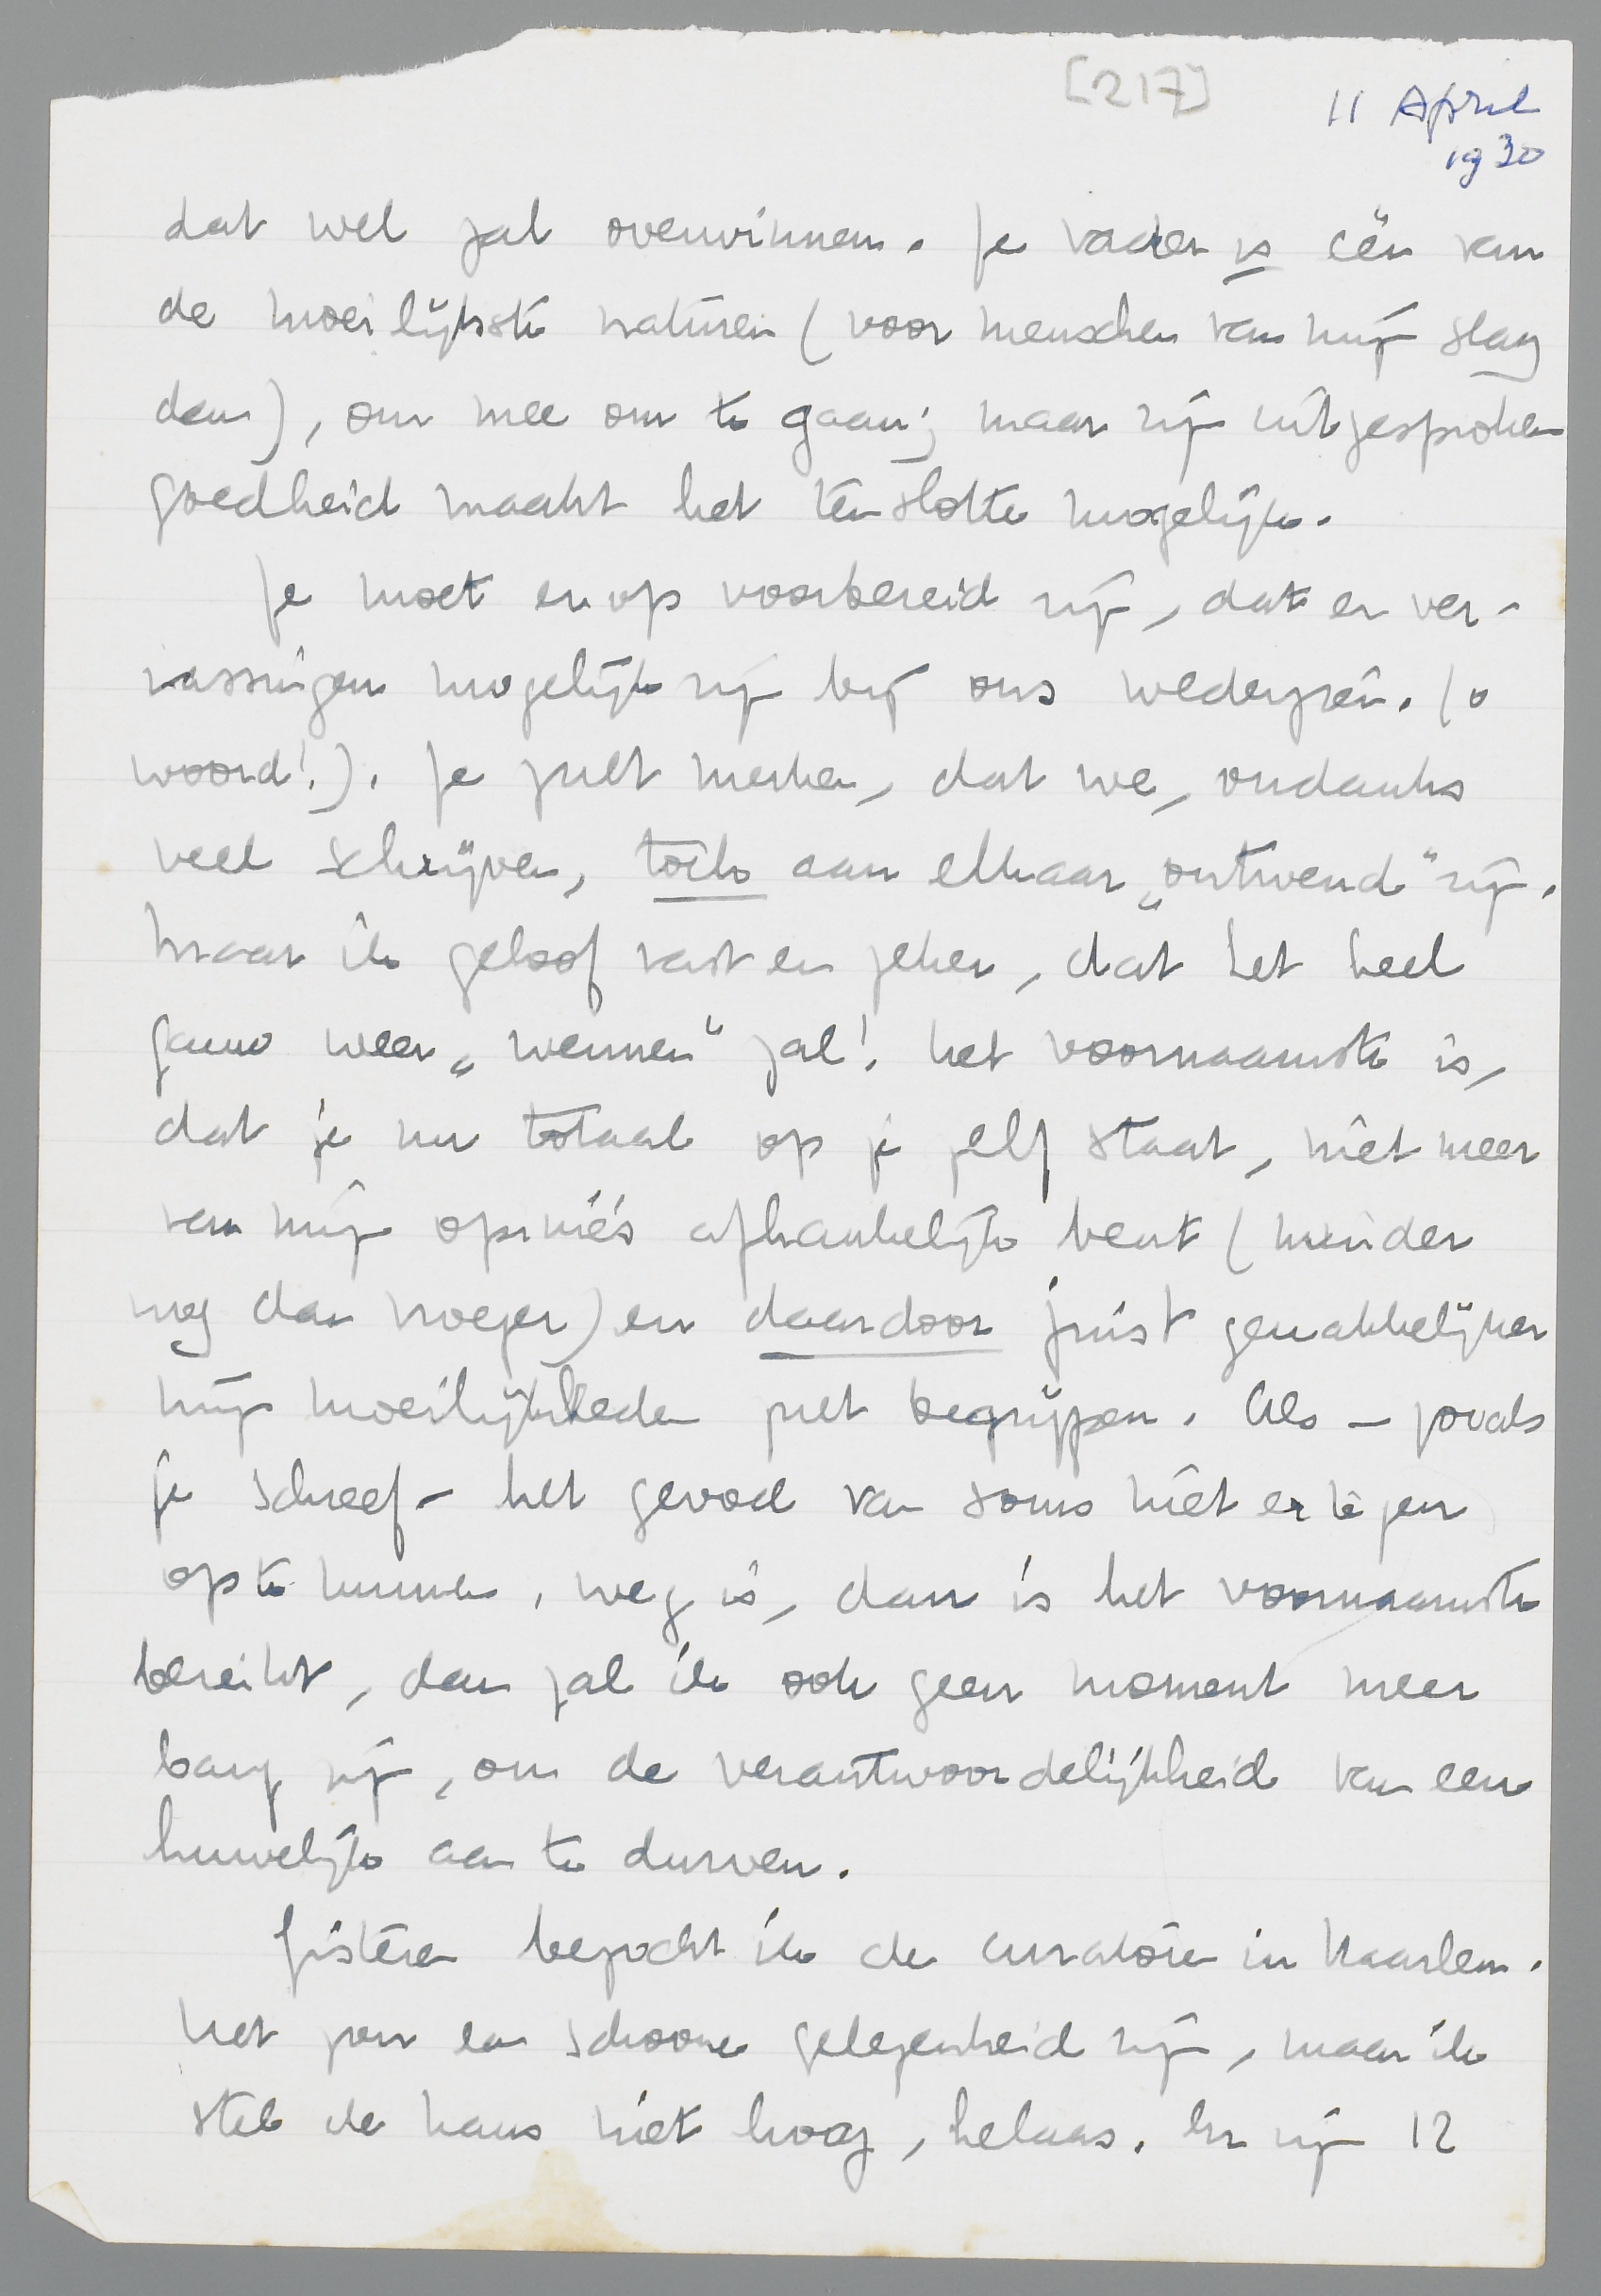 [217]
11 April
1930
dat wel zal overwinnen. Je vader is één van
de moeilijkste naturen (voor menschen van mijn slag
dan), om mee om te gaan; maar zijn uitgesproken
goedheid maakt het tenslotte mogelijk.
Je moet er op voorbereid zijn, dat er ver-
rassingen mogelijk zijn bij ons wederzien. (o
woord!). Je zult merken, dat we, ondanks
veel schrijven, toch aan elkaar „ontwend" zijn.
Maar ik geloof vast en zeker, dat het heel
gauw weer „wennen" zal! Het voornaamste is,
dat je nu totaal op je zelf staat, niet meer
van mijn opinie's afhankelijk bent (minder
nog dan vroeger) en daardoor juist gemakkelijker
mijn moeilijkheden zult begrijpen. Als – zooals
je schreef – het gevoel van soms niet er tegen
op te kunnen, weg is, dan is het voornaamste
bereikt, dan zal ik ook geen moment meer
bang zijn, om de verantwoordelijkheid van een
huwelijk aan te durven.
Gisteren bezocht ik de curatoren in Haarlem.
Het zou een schoone gelegenheid zijn, maar ik
stel de kans niet hoog, helaas. Er zijn 12